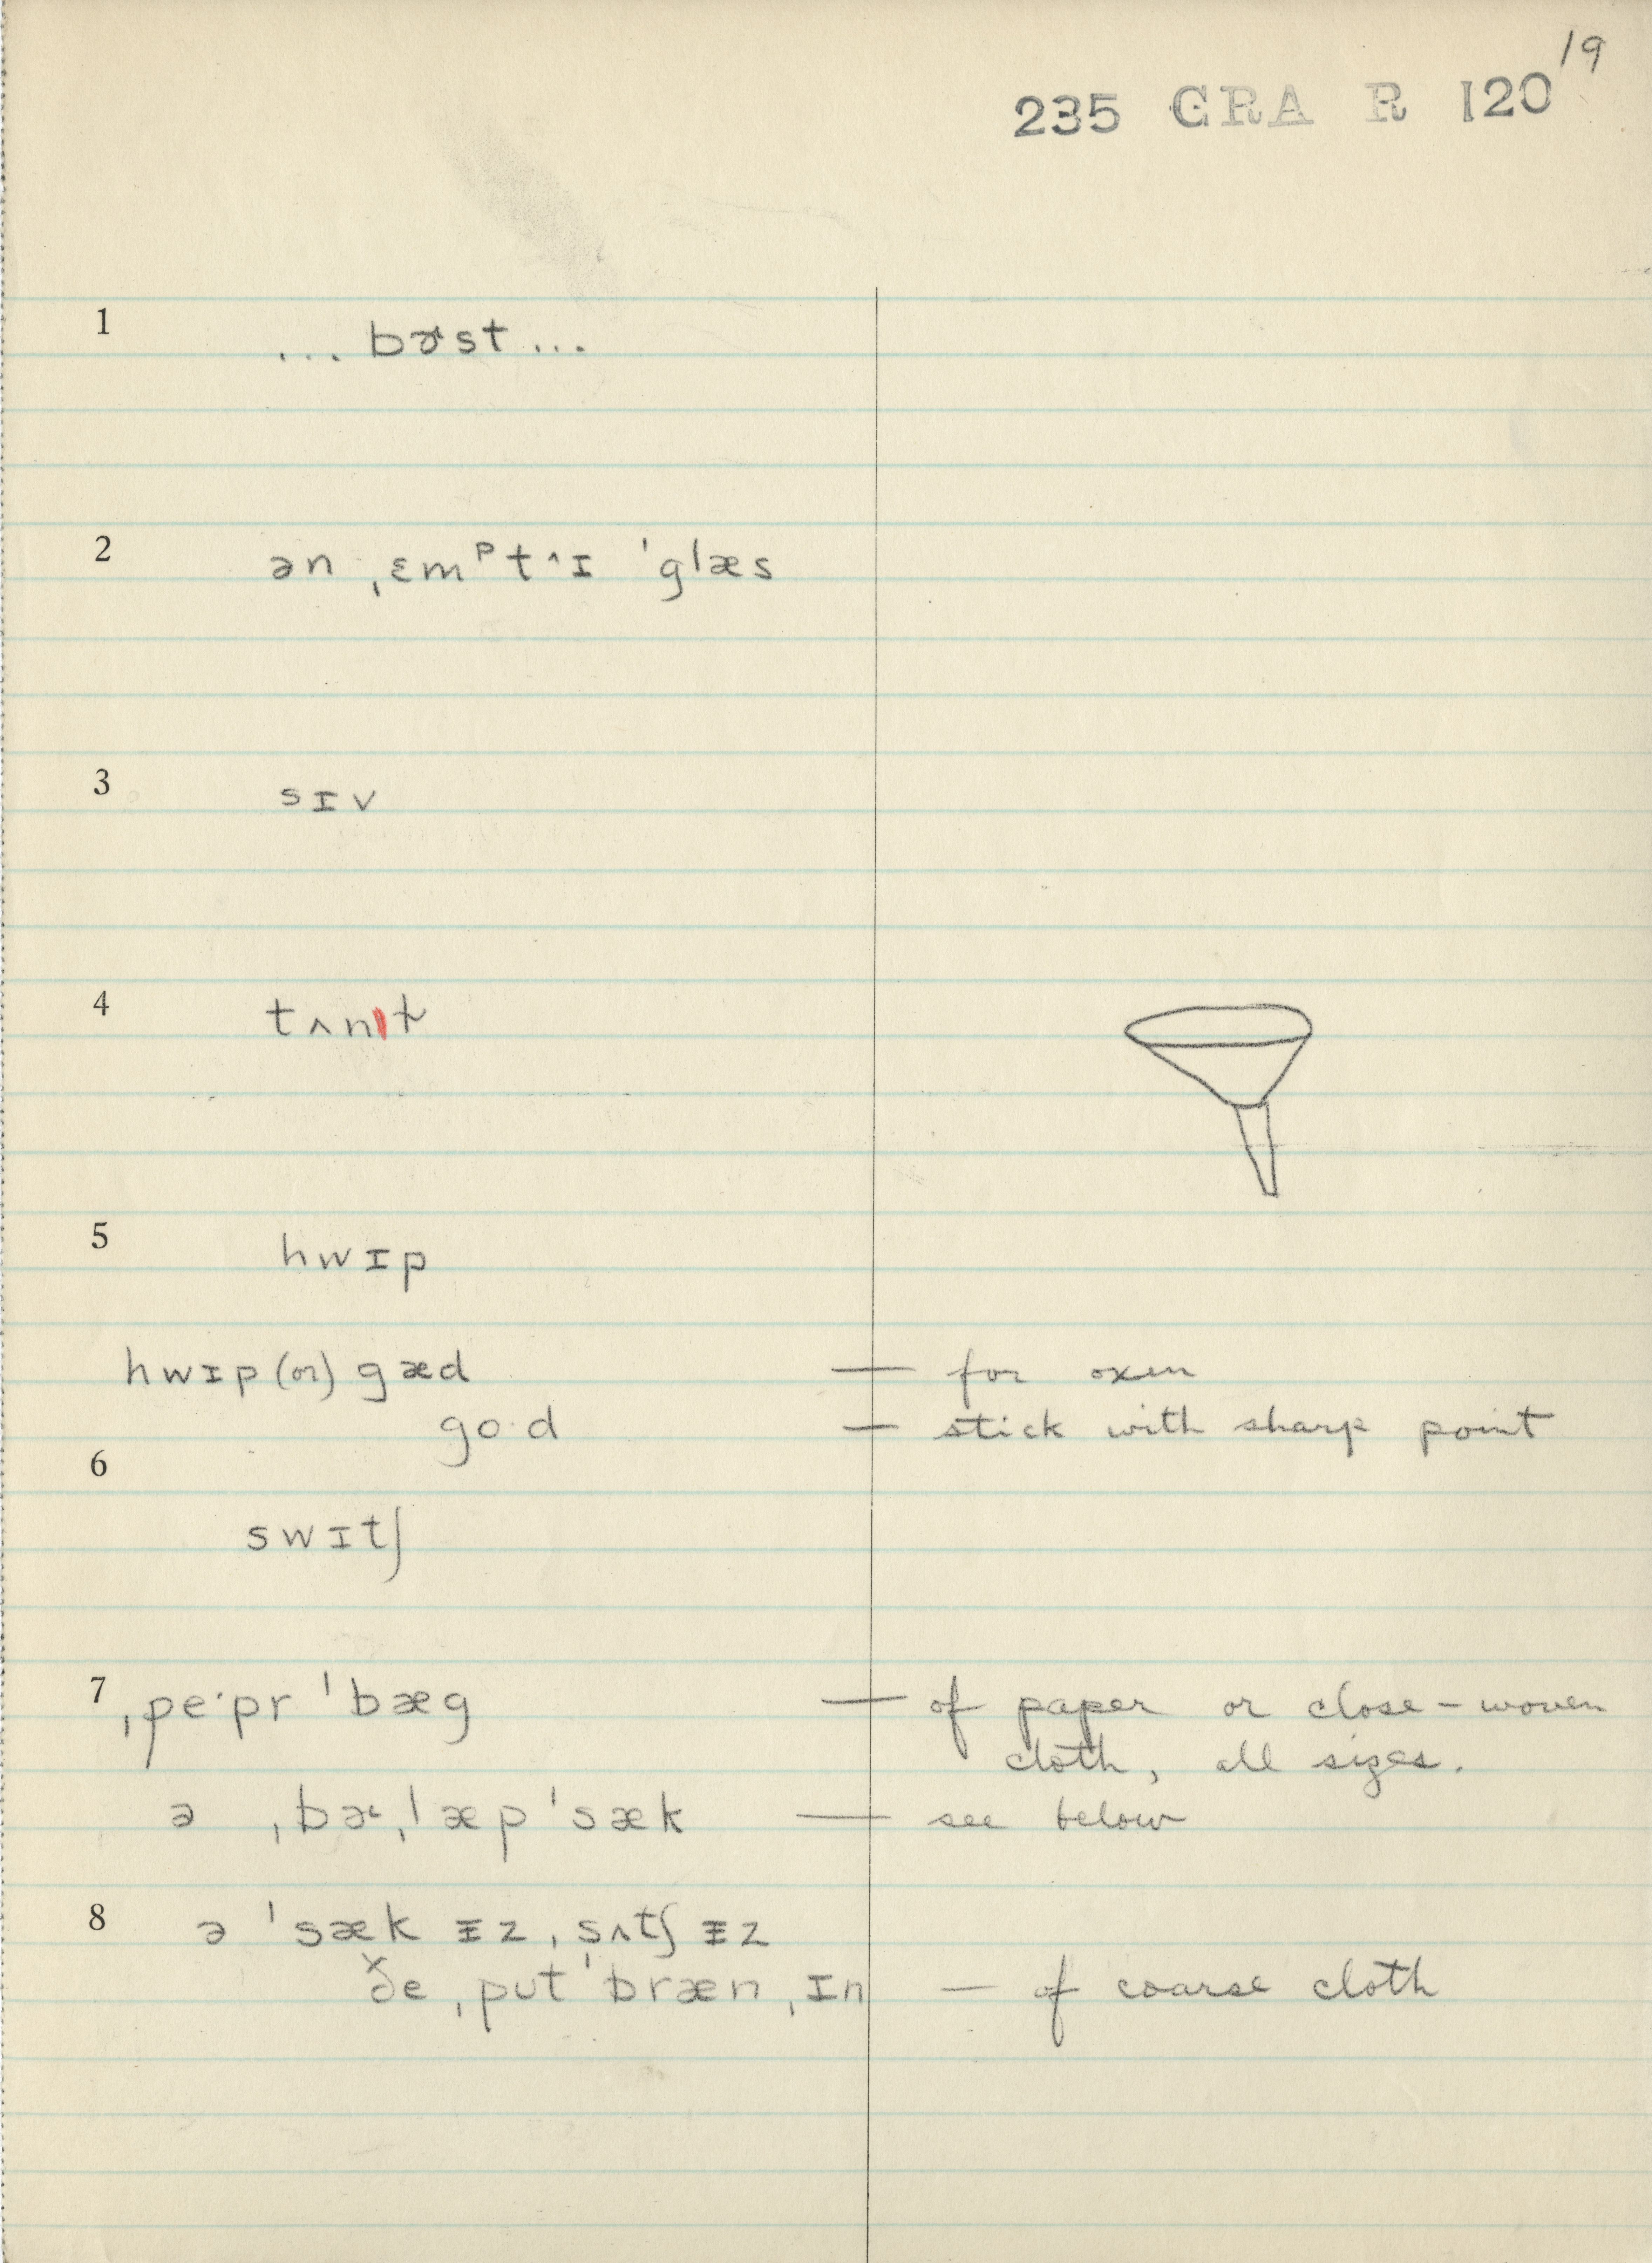 19
235 GRA R 120
1 ... bɚst ...
2 ən ˌɛmᵖt^ɪ ˈglæs
3 sɪv
4 tʌnɫ
5 hwɪp
hwɪp (or) gæd — for oxen
go·d — stick with sharp point
6
swɪtʃ
7 ˌpe·pr ˈbæg — of paper or close-woven
cloth, all sizes.
ə ˌbɚˌlæp ˈsæk — see below
8 ə ˈsæk ᵻz, sʌtʃ ᵻz
ðe ˌput ˈbræn ˌɪn — of coarse cloth